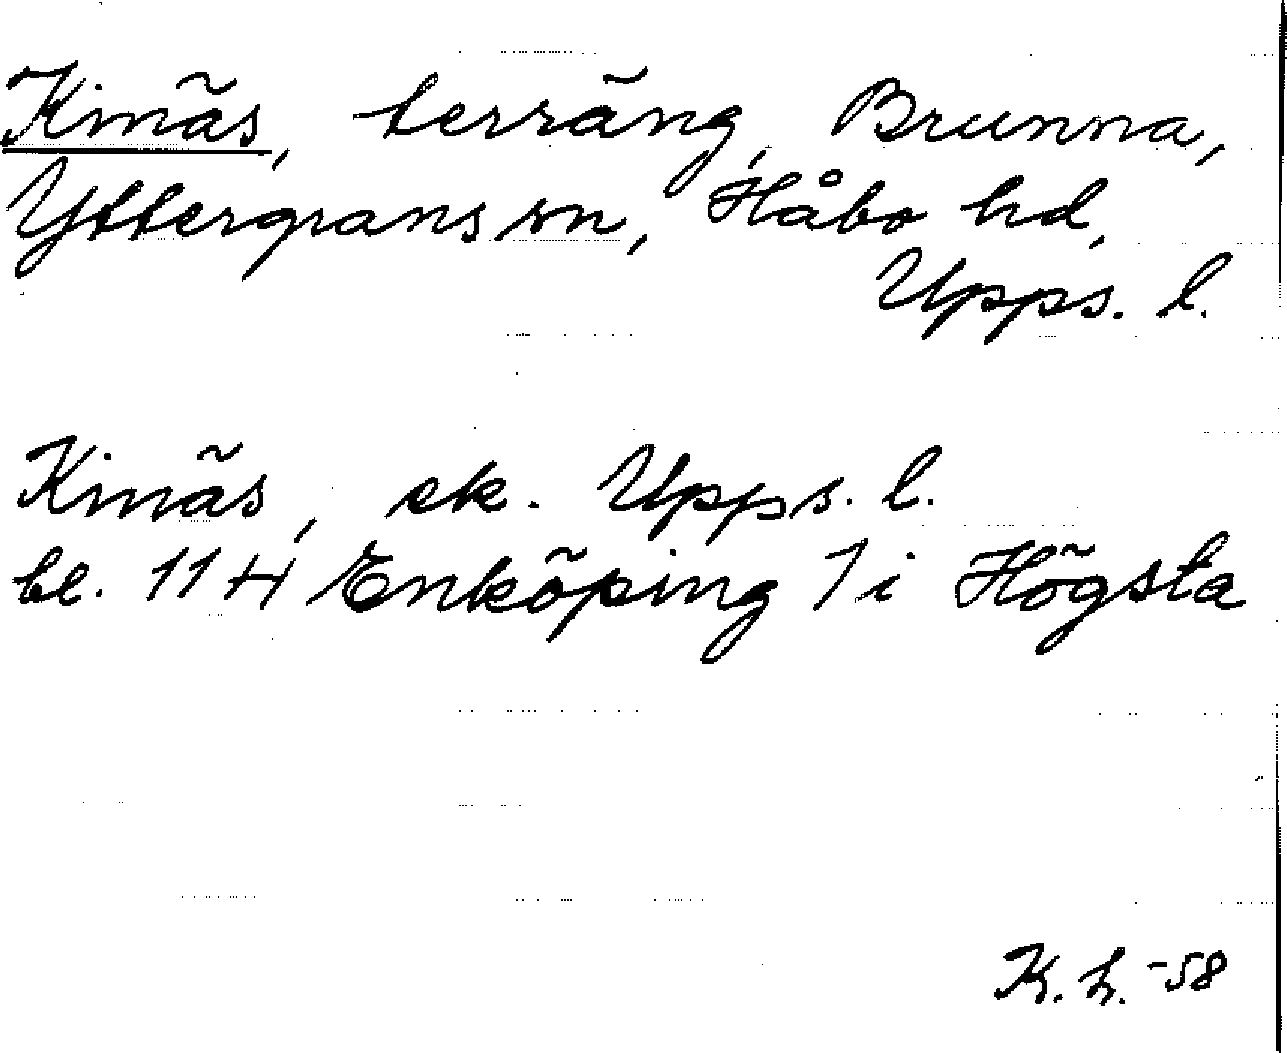 Kinäs, terräng, Brunna,
Yttergrans sn, Håbo hd,
Upps. l.
Kinäs, ek. Upps. l.
bl. 11 H Enköping 7 i Högsta
K. L. -58